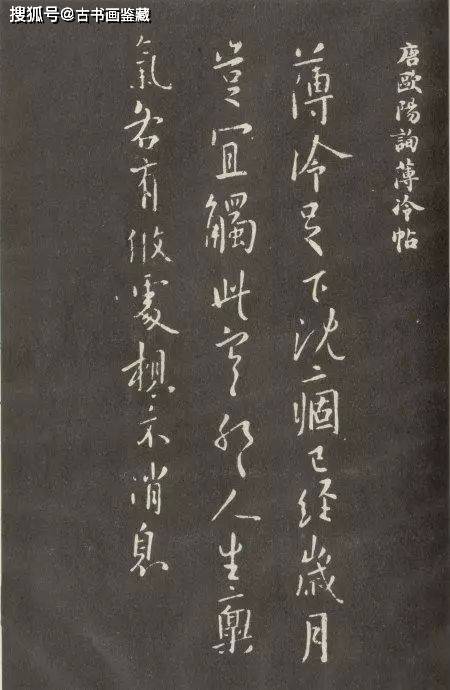 搜狐号@古书画鉴藏
唐歐陽詢薄冷帖
薄冷足下沈痼已經歲月
豈宜觸此寒耶人生稟
氣各有攸處想示消息